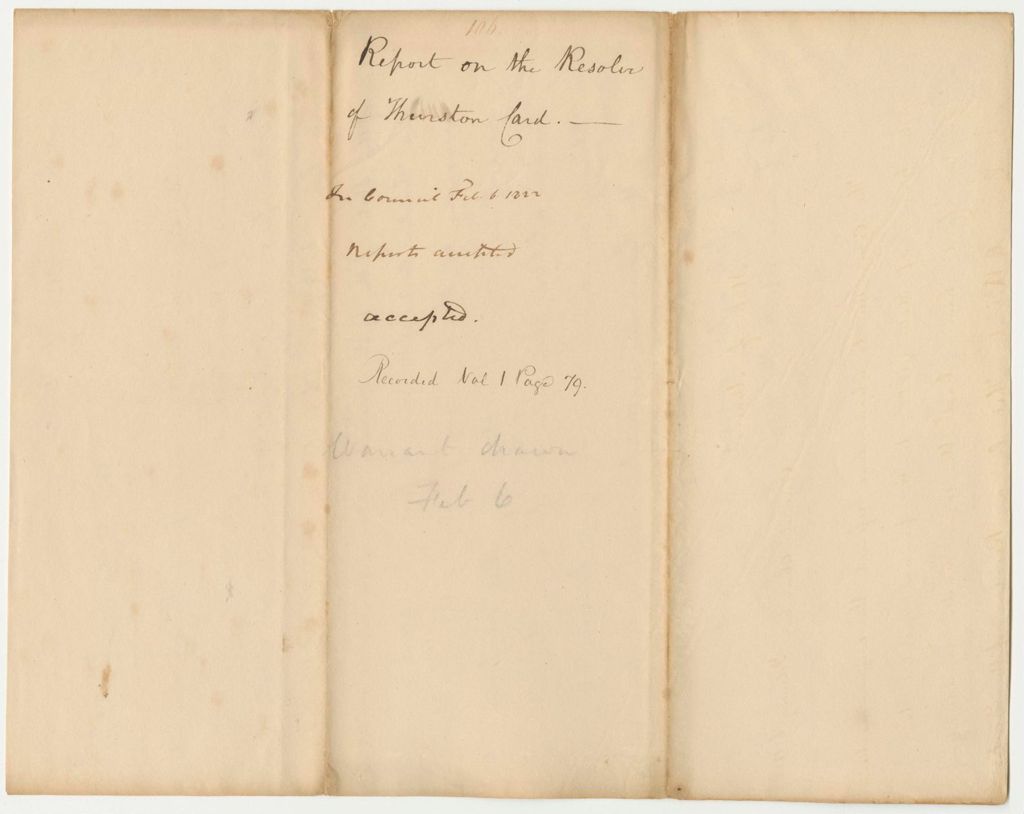 106.
Report on the Resolve
of Thurston Card. —
In Council Feb. 6 1822
Report accepted
accepted.
Recorded Vol 1 Page 79.
Warrant drawn
Feb 6